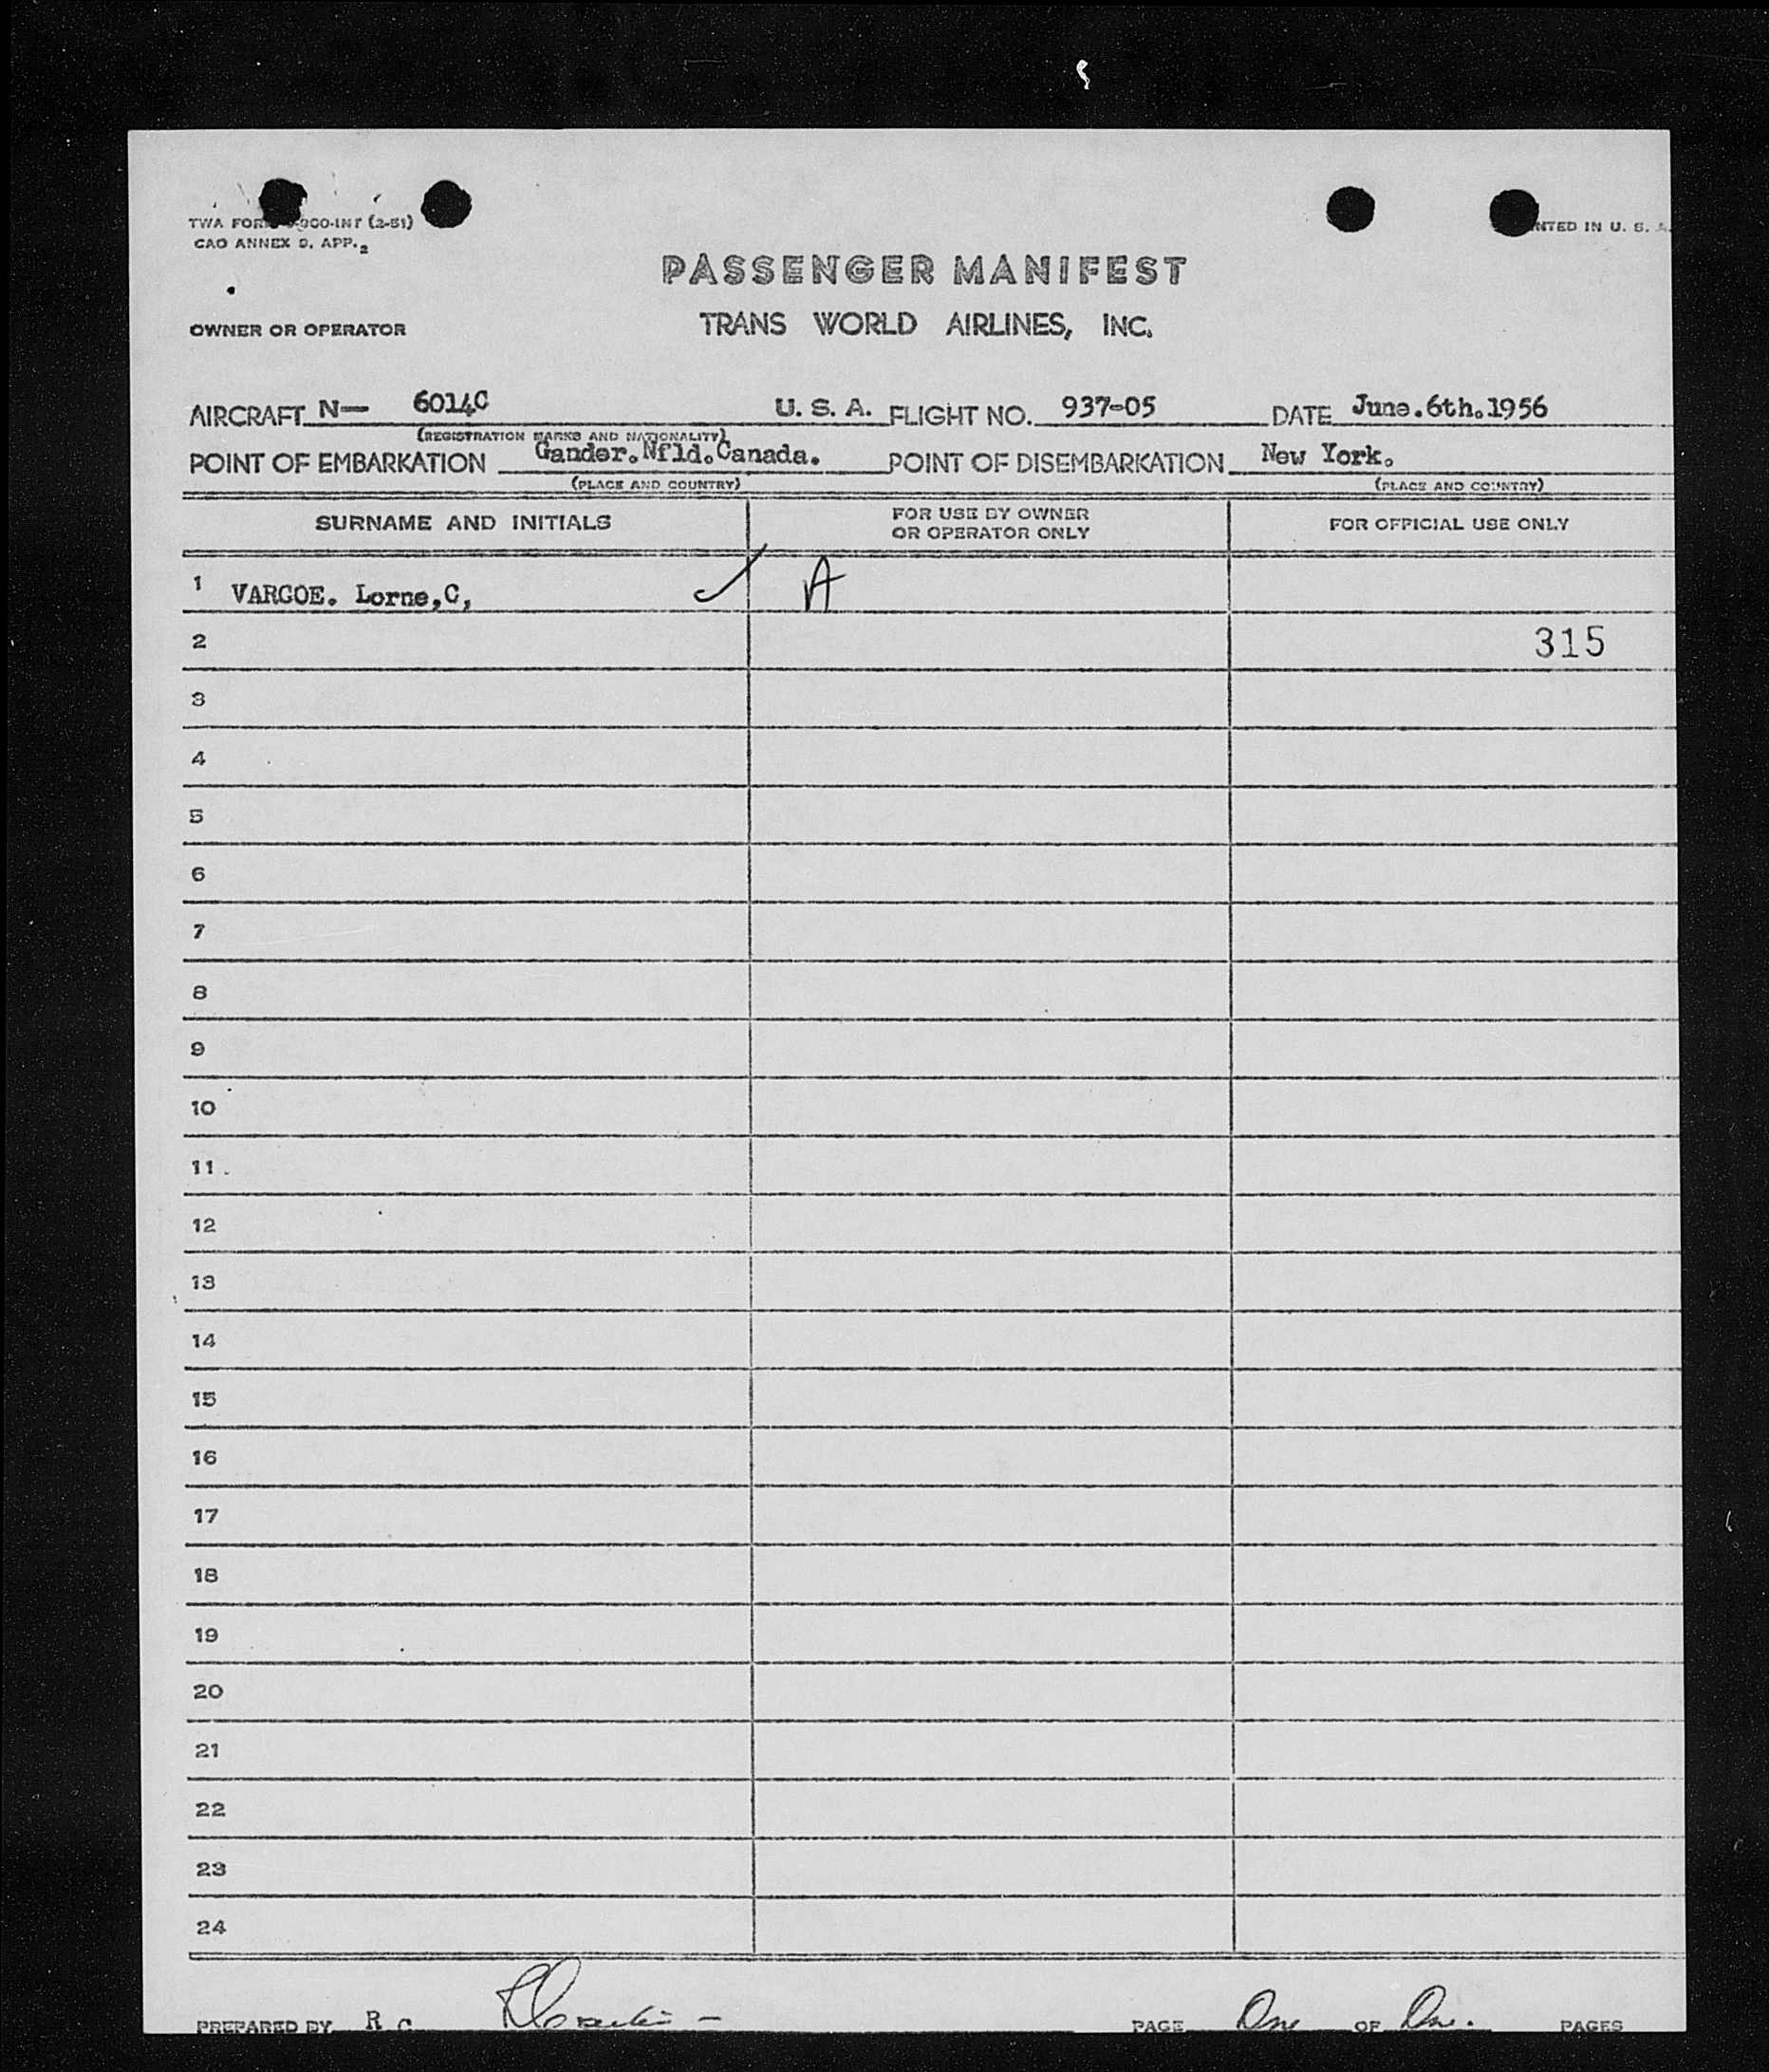 TWA FORM -900-INT (2-51)
CAO ANNEX 9, APP. 2
NTED IN U. S. A.
PASSENGER MANIFEST
OWNER OR OPERATOR TRANS WORLD AIRLINES, INC.
AIRCRAFT N— 6014C U. S. A. FLIGHT NO. 937-05 DATE June.6th.1956
(REGISTRATION MARKS AND NATIONALITY)
POINT OF EMBARKATION Gander.Nfld.Canada. POINT OF DISEMBARKATION New York.
(PLACE AND COUNTRY) (PLACE AND COUNTRY)
SURNAME AND INITIALS FOR USE BY OWNER OR OPERATOR ONLY FOR OFFICIAL USE ONLY
1 VARCOE. Lorne,C, A
2 315
3
4
5
6
7
8
9
10
11
12
13
14
15
16
17
18
19
20
21
22
23
24
PREPARED BY R.C. PAGE One OF One. PAGES